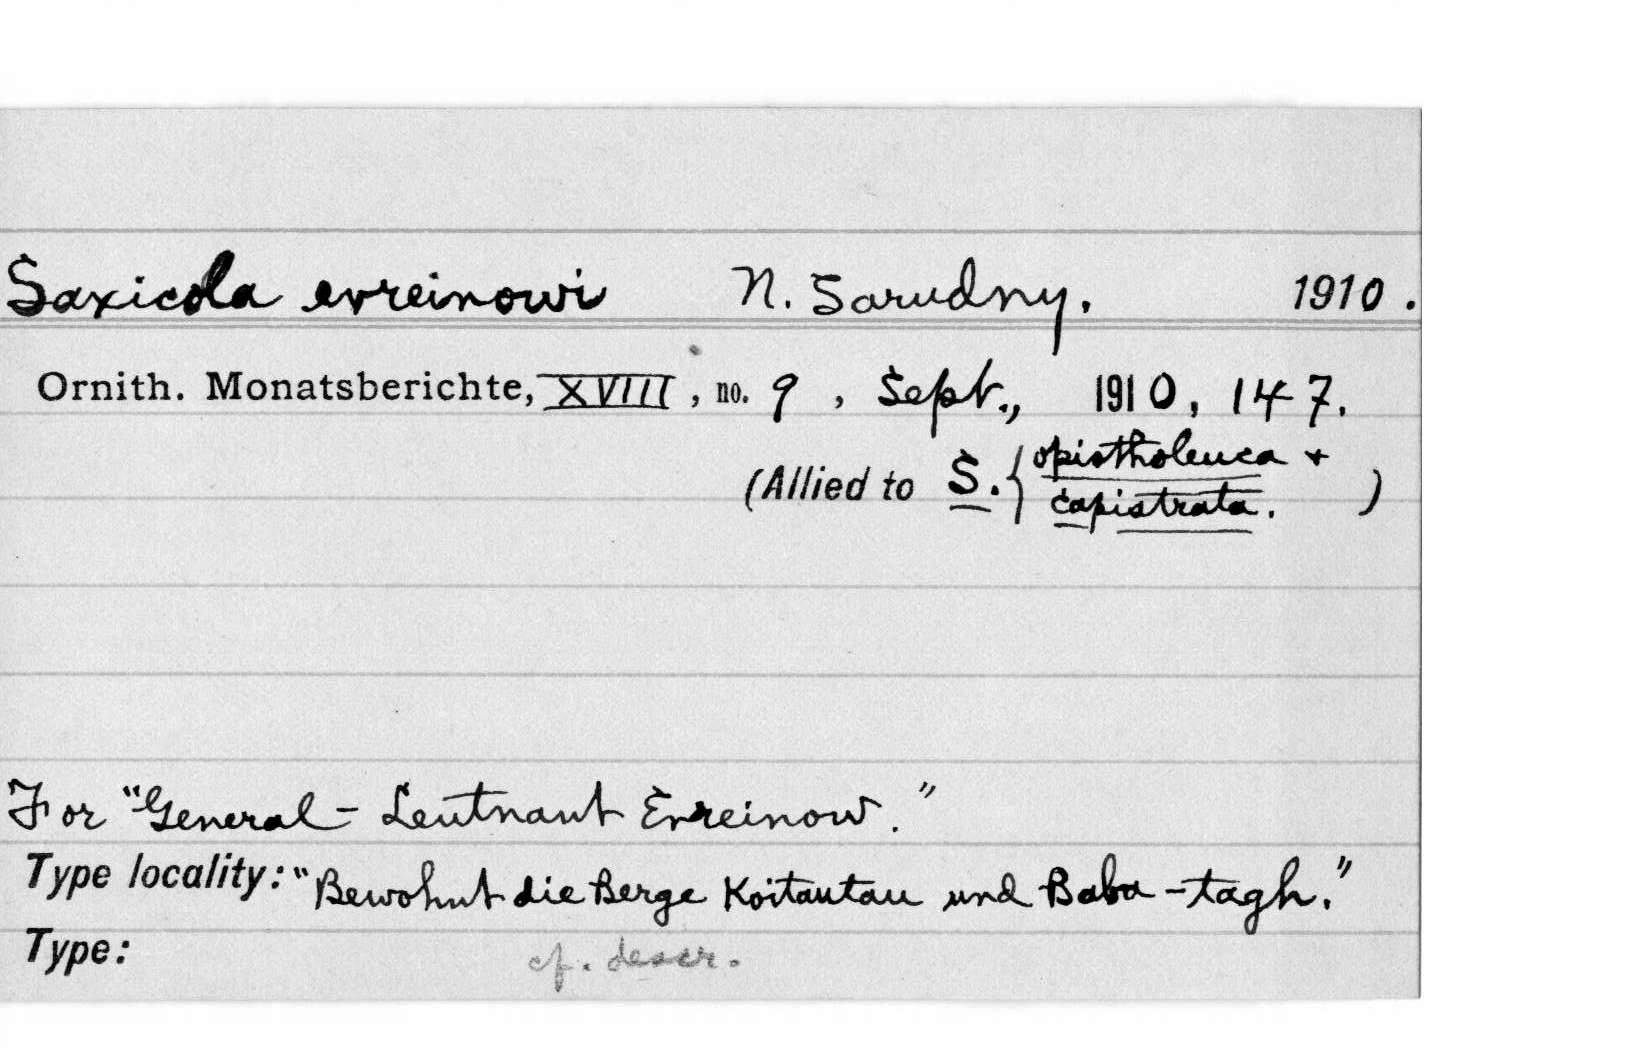 Saxicola evreinowi N. Sarudny, 1910.
Ornith. Monatsberichte, XVIII, no. 9, Sept., 1910, 147.
(Allied to S. { opistholeuca +
capistrata. )
For "General-Leutnant Evreinow."
Type locality: "Bewohnt die Berge Koitantau und Baba-tagh."
Type: cf. descr.